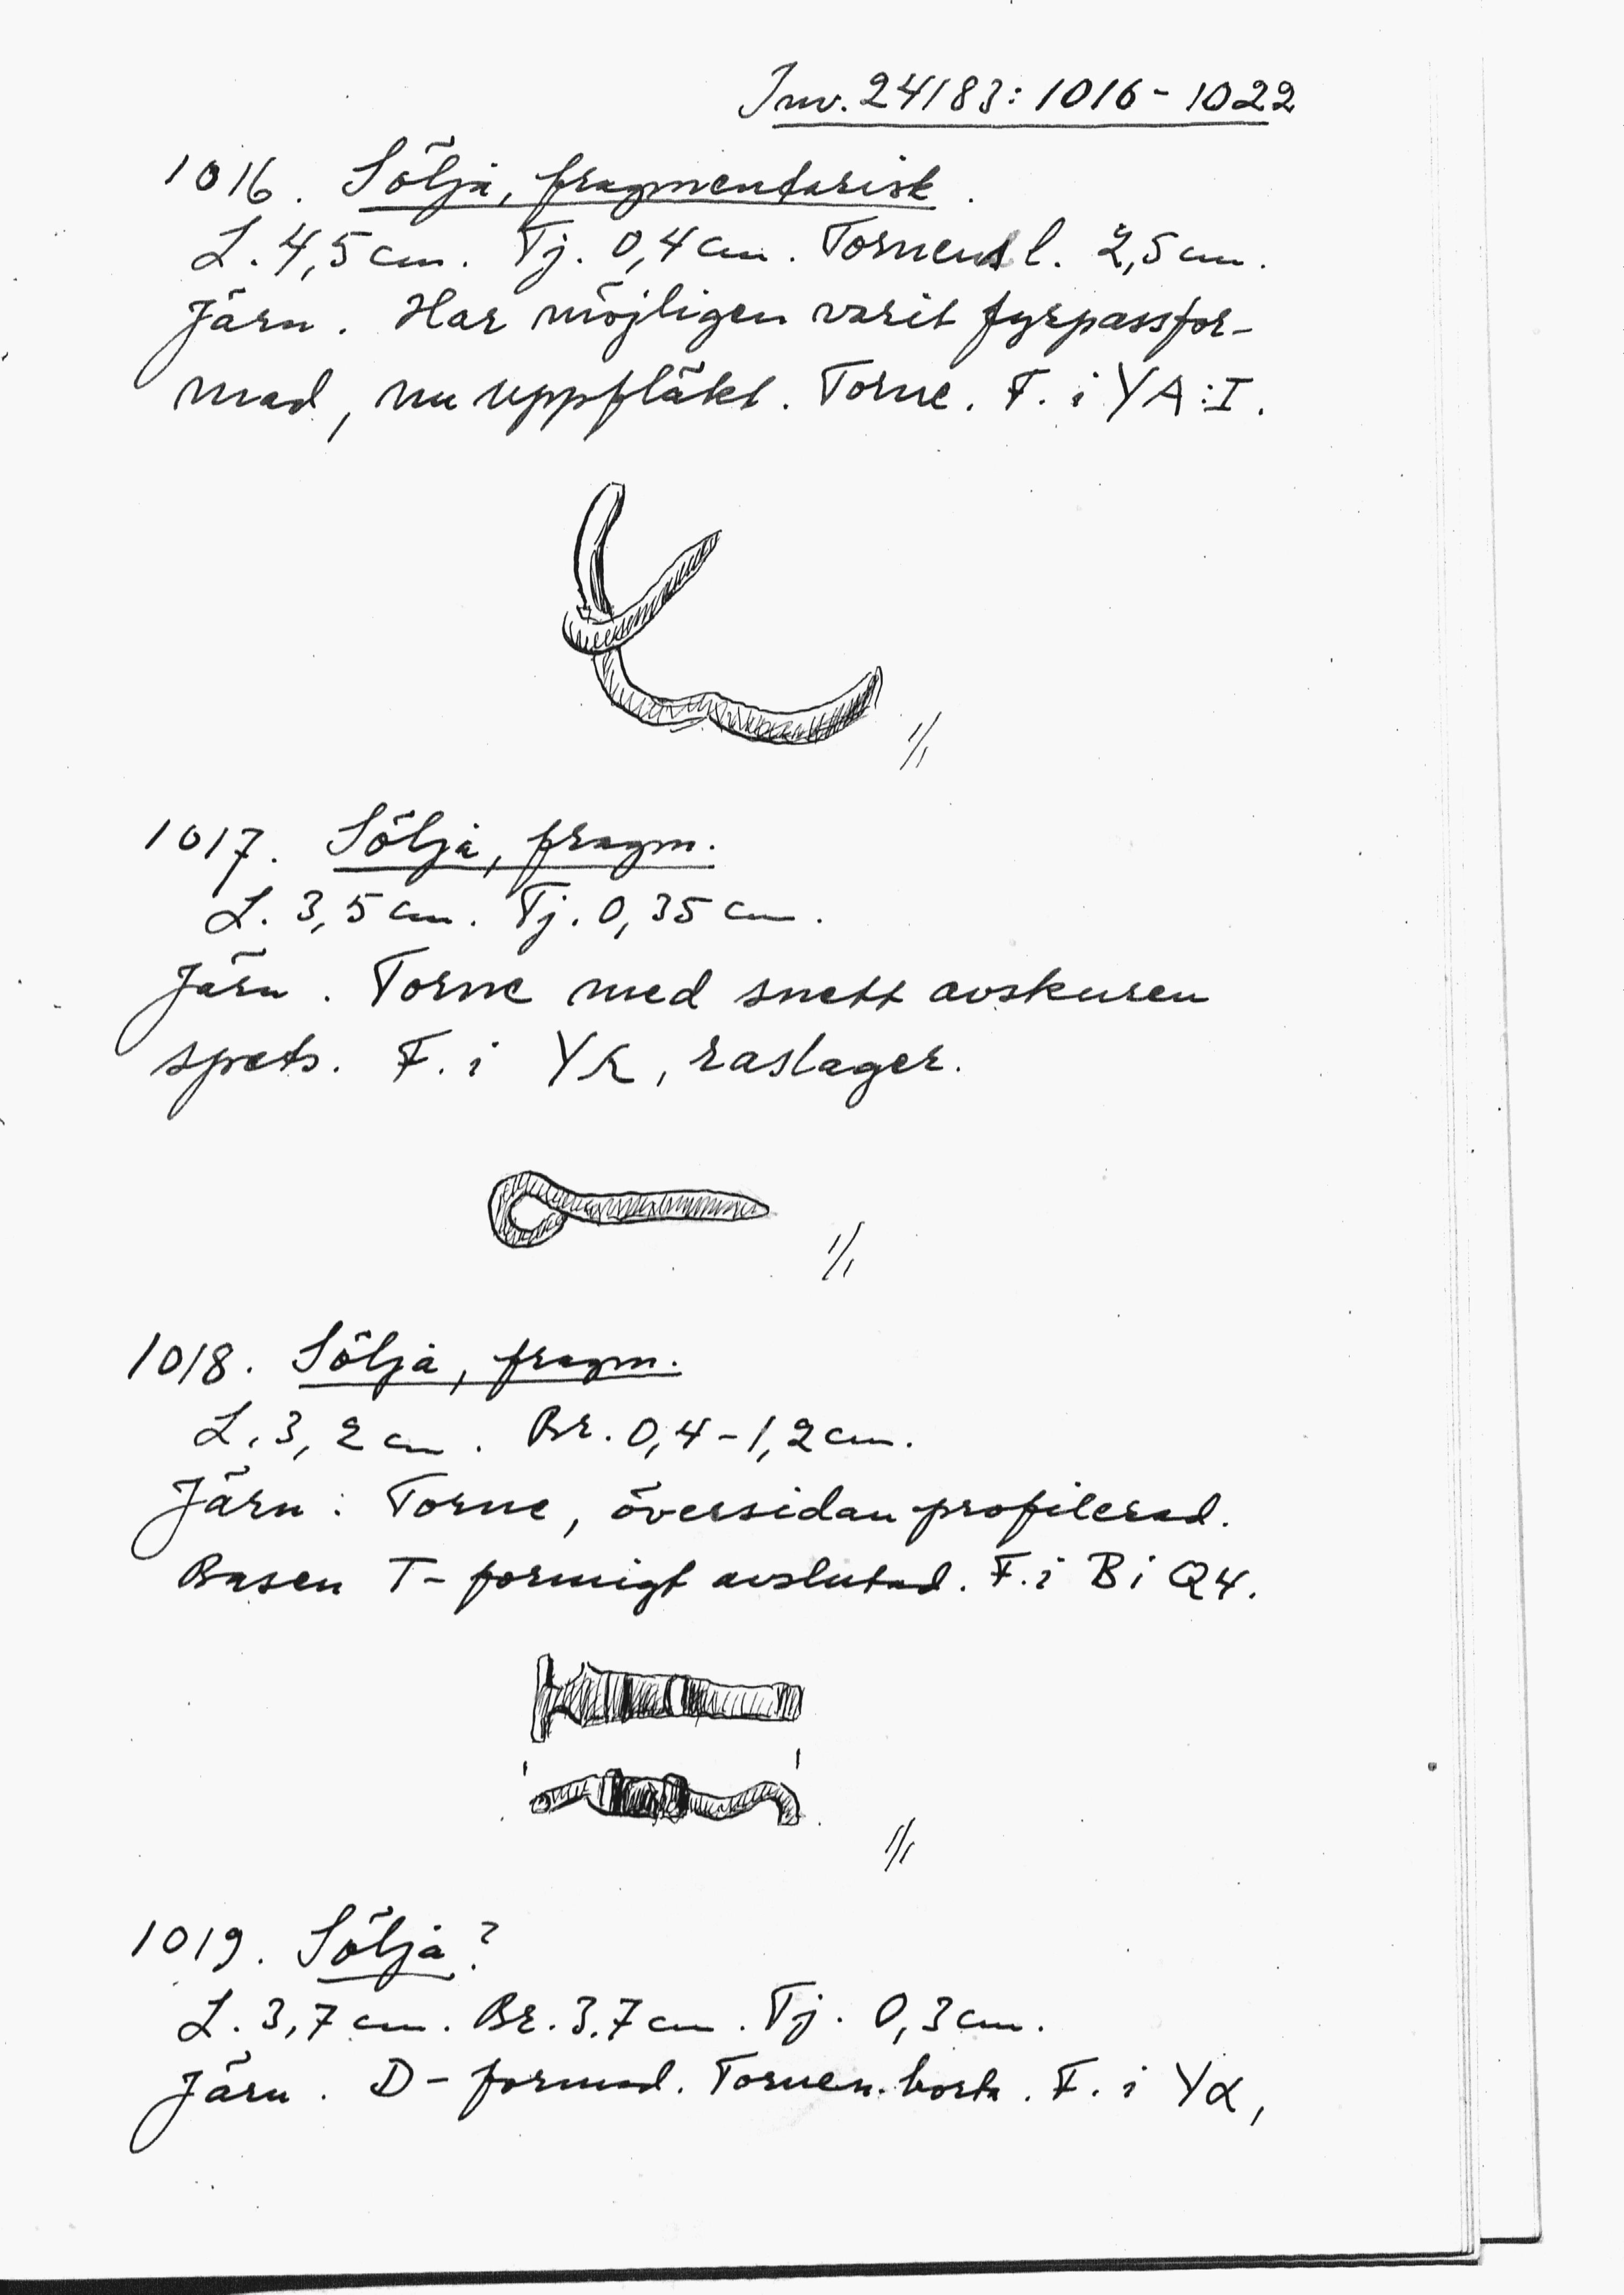 Inv. 24183: 1016-1022
1016. Sölja, fragmentarisk.
L. 4,5 cm. Tj. 0,4 cm. Tornens l. 2,5 cm.
Järn. Har möjligen varit fyrpassfor-
mad, nu uppfläkt. Torne. F. i YA:I.
1/1
1017. Sölja, fragm.
L. 3,5 cm. Tj. 0,35 cm.
Järn. Torne med snett avskuren
spets. F. i YK, raslager.
1/1
1018. Sölja, fragm.
L. 3,2 cm. Br. 0,4-1,2 cm.
Järn. Torne, översidan profilerad.
Basen T-formigt avslutad. F. i B i Q4.
1/1
1019. Sölja?
L. 3,7 cm. Br. 3,7 cm. Tj. 0,3 cm.
Järn. D-formad. Tornen borta. F. i Yα,